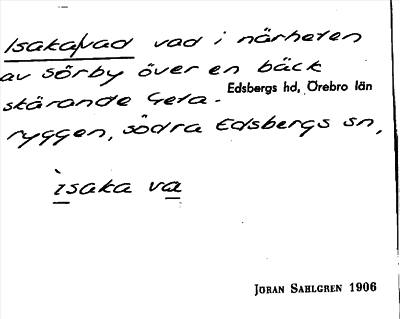 Isakavad vad i närheten
av Sörby över en bäck
skärande Geta-
Edsbergs hd, Örebro län
ryggen, södra Edsbergs sn,
ìsaka va
JÖRAN SAHLGREN 1906